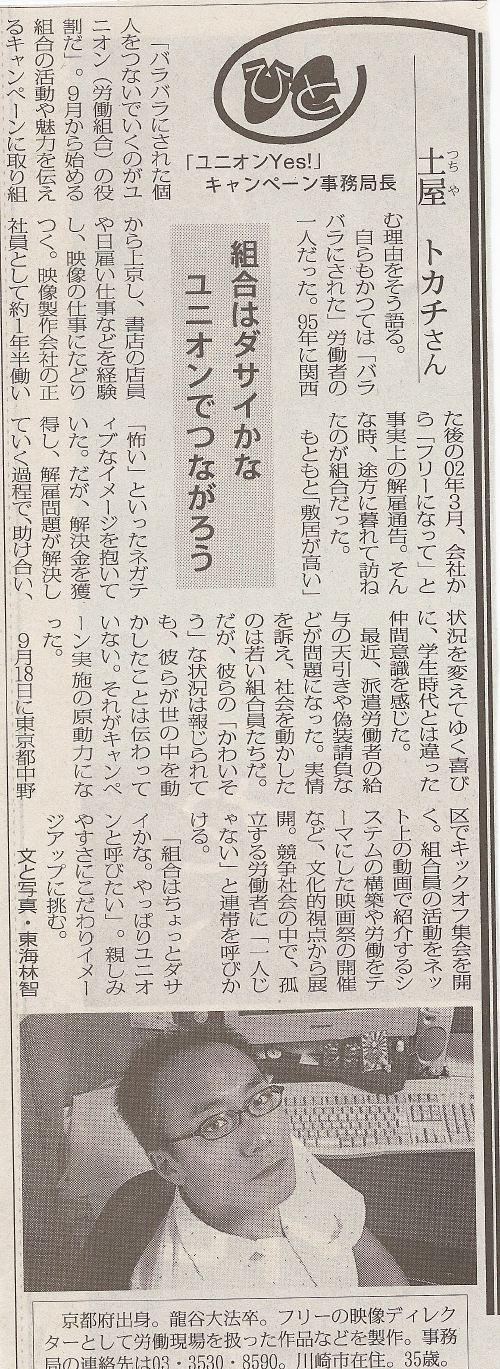 ひと
「ユニオンYes!」
キャンペーン事務局長
土屋 トカチさん
つち や
組合はダサイかな
ユニオンでつながろう
「バラバラにされた個
人をつないでいくのがユ
ニオン（労働組合）の役
割だ」。９月から始める
組合の活動や魅力を伝え
るキャンペーンに取り組
む理由をそう語る。
自らもかつては「バラ
バラにされた」労働者の
一人だった。95年に関西
から上京し、書店の店員
や日雇い仕事などを経験
し、映像の仕事にたどり
つく。映像製作会社の正
社員として約１年半働い
た後の02年３月、会社か
ら「フリーになって」と
事実上の解雇通告。そん
な時、途方に暮れて訪ね
たのが組合だった。
もともと「敷居が高い」
「怖い」といったネガテ
ィブなイメージを抱いて
いた。だが、解決金を獲
得し、解雇問題が解決し
ていく過程で、助け合い、
状況を変えてゆく喜び
に、学生時代とは違った
仲間意識を感じた。
最近、派遣労働者の給
与の天引きや偽装請負な
どが問題になった。実情
を訴え、社会を動かした
のは若い組合員たちだ。
だが、彼らの「かわいそ
う」な状況は報じられて
も、彼らが世の中を動
かしたことは伝わって
いない。それがキャンペ
ーン実施の原動力にな
った。
９月18日に東京都中野
区でキックオフ集会を開
く。組合員の活動をネッ
ト上の動画で紹介するシ
ステムの構築や労働をテ
ーマにした映画祭の開催
など、文化的視点から展
開。競争社会の中で、孤
立する労働者に「一人じ
ゃない」と連帯を呼びか
ける。
「組合はちょっとダサ
イかな。やっぱりユニオ
ンと呼びたい」。親しみ
やすさにこだわりイメー
ジアップに挑む。
文と写真・東海林智
京都府出身。龍谷大法卒。フリーの映像ディレク
ターとして労働現場を扱った作品などを製作。事務
局の連絡先は03・3530・8590。川崎市在住。35歳。